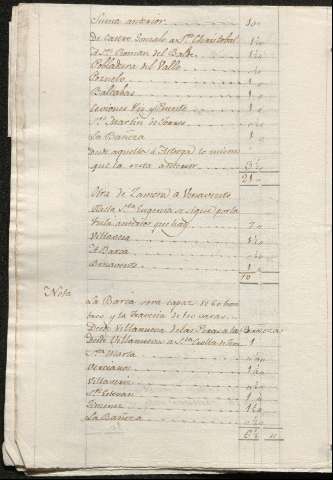 Suma anterior 10
De Castro Gonzalo a Sn. Christobal 1½
A Sn. Roman del Valle 1½
Pobladura del Valle ½
Pozuelo 1
1
Vez y Puente 1
Sn. Martin de Torres 1
La Bañeza 1
Desde aquella a Astorga lo mismo
que la ruta anterior 3½
21
Otra de Zamora a Benavente
Hasta Sta. Eugenia se sigue por la
ruta anterior que hay 7
Villaveza 1½
A Barca ½
Benavente 1
10
Nota
La Barca será capaz de 60 hom
bres y la travesía de 100 varas.
Desde Villanueva de las Peras a la Bañeza
Desde Villanueva a Sta. de Tera 1
Sta. Marta
Vercianos 1
Villaferin
Sn. Esteban 1
Jimenez 1½
La Bañeza
6½